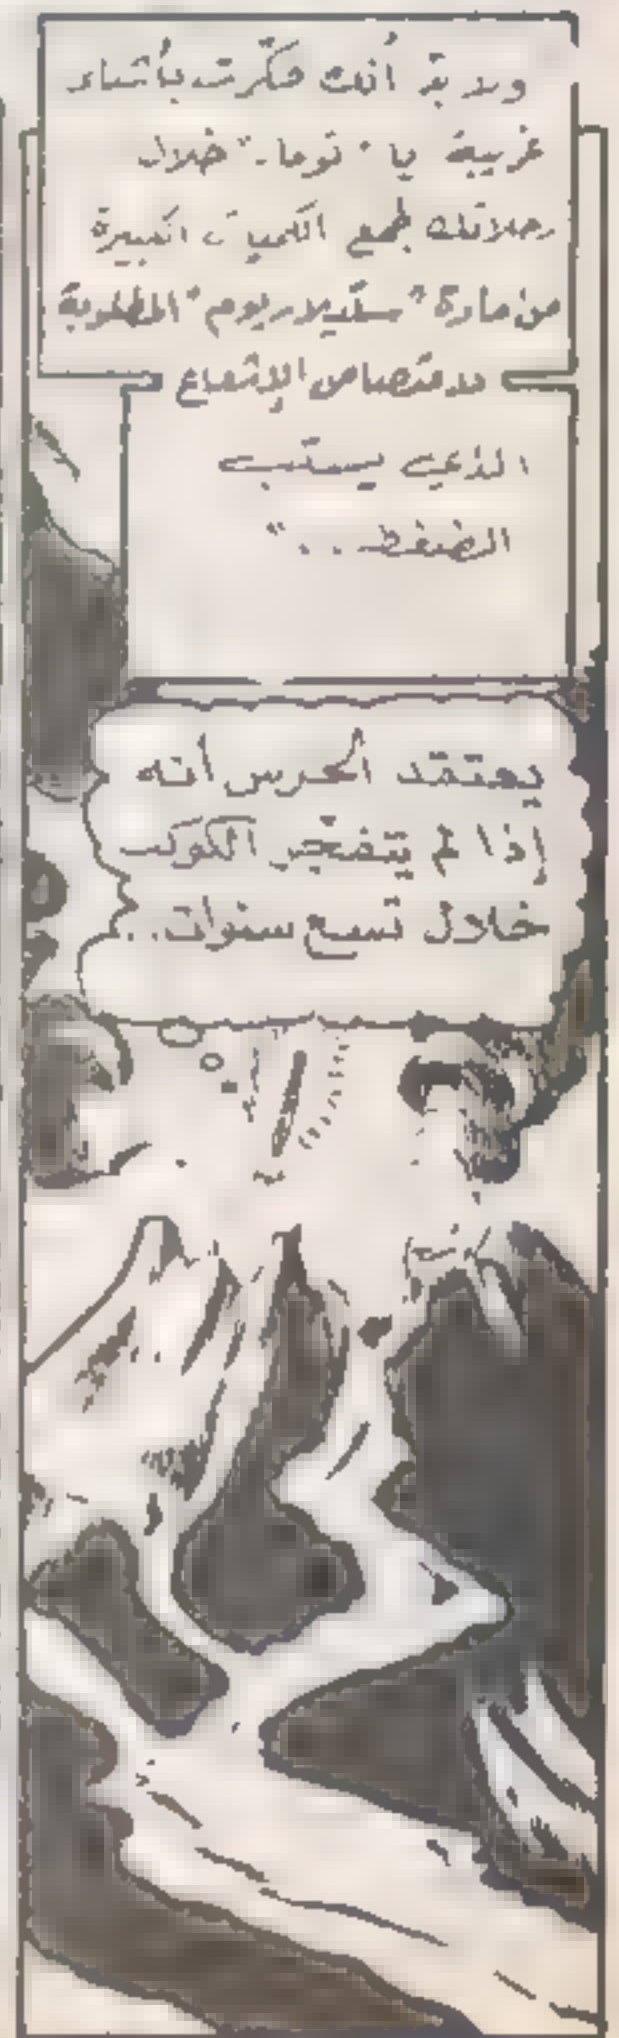 ولا بدّ أنك فكّرت بأشياء
غريبة يا "توما-" خلال
رحلاتك لجمع الكميات الكبيرة
من مادة " ستيلاريوم " المطلوبة
لامتصاص الإشعاع
الذي يسبّب
الضغط . . "
يعتقد الحرس أنه
إذا لم يتفجّر الكوكب
خلال تسع سنوات . .